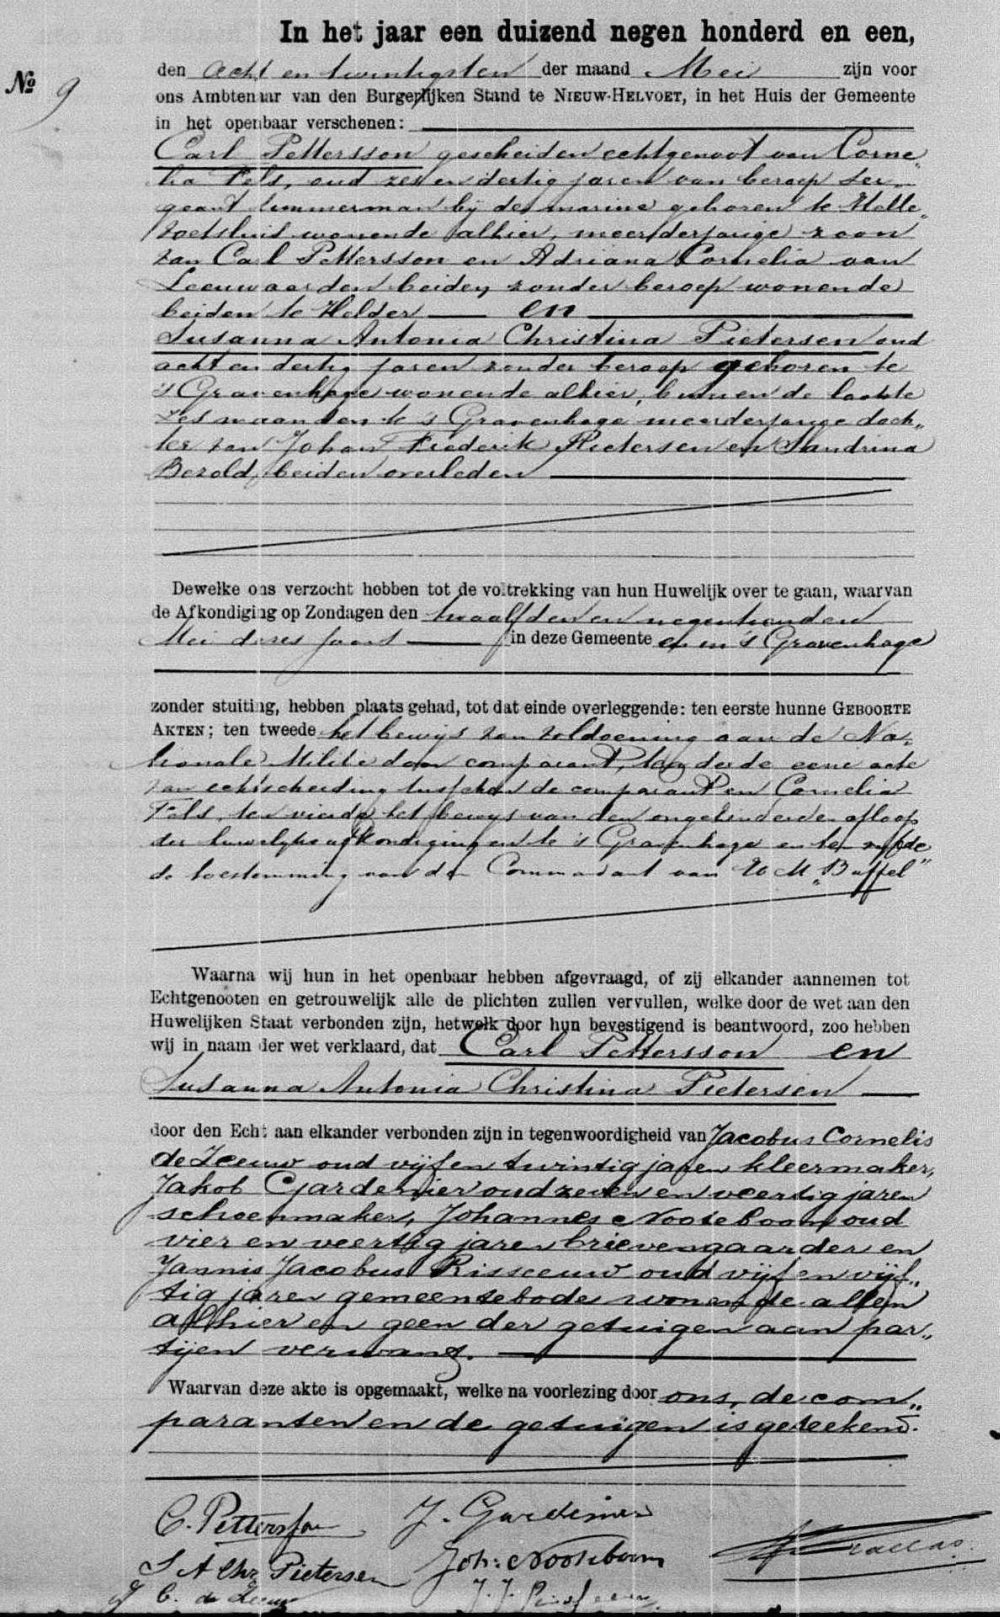 In het jaar een duizend negen honderd en een,
No 9
den acht en twintigsten der maand Mei zijn voor
ons Ambtenaar van den Burgerlijken Stand te NIEUW-HELVOET, in het Huis der Gemeente
in het openbaar verschenen:
Carl Pettersson gescheiden echtgenoot van Corne„
lia Fels, oud zes en dertig jaren van beroep ser„
geant timmerman bij de marine geboren te Helle„
voetsluis wonende alhier, meerderjarige zoon
van Carl Pettersson en Adriana Cornelia van
Leeuwaarden beiden zonder beroep wonende
beiden te Helder en
Susanna Antonia Christina Pietersen oud
acht en dertig jaren zonder beroep geboren te
's Gravenhage wonende alhier, binnen de laatste
zes maanden te 's Gravenhage meerderjarige doch„
ter van Johan Frederik Pietersen en Sandrina
Bezold, beiden overleden
Dewelke ons verzocht hebben tot de voltrekking van hun Huwelijk over te gaan, waarvan
de Afkondiging op Zondagen den twaalfden en negentienden
Mei dezes jaars in deze Gemeente en in 's Gravenhage
zonder stuiting, hebben plaats gehad, tot dat einde overleggende: ten eerste hunne GEBOORTE
AKTEN; ten tweede het bewijs van voldoening aan de Na„
tionale Militie door comparant, ten derde eene acte
van echtscheiding tusschen de comparant en Cornelia
Fels, ten vierde het bewijs van den ongehinderden afloop
der huwelijksafkondigingen te 's Gravenhage en ten vijfde
de toestemming van den Commandant van Zr M „Buffel"
Waarna wij hun in het openbaar hebben afgevraagd, of zij elkander aannemen tot
Echtgenooten en getrouwelijk alle de plichten zullen vervullen, welke door de wet aan den
Huwelijken Staat verbonden zijn, hetwelk door hun bevestigend is beantwoord, zoo hebben
wij in naam der wet verklaard, dat Carl Pettersson en
Susanna Antonia Christina Pietersen
door den Echt aan elkander verbonden zijn in tegenwoordigheid van Jacobus Cornelis
de Leeuw oud vijf en twintig jaren kleermaker,
Jakob Gardenier oud zeven en veertig jaren
schoenmaker, Johannes Nooteboom oud
vier en veertig jaren brievengaarder en
Jannis Jacobus Risseeuw oud vijf en vijf„
tig jaren gemeentebode wonende allen
alhier en geen der getuigen aan par„
tijen verwant.
Waarvan deze akte is opgemaakt, welke na voorlezing door ons, de com„
paranten en de getuigen is geteekend.
C. Pettersson J. Gardenier
S A Chr Pietersen Joh: Nooteboom
J C. de Leeuw J. J. Risseeuw